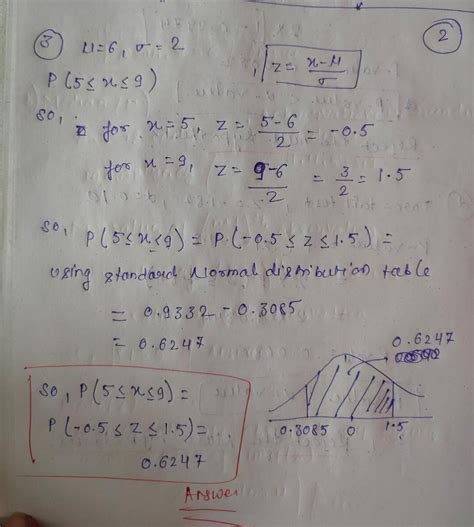 2
3 μ=6, σ=2
P(5≤x≤9) , z = x-μ/σ
so, for x=5, z = 5-6/2 = -0.5
for x=9, z = 9-6/2 = 3/2 = 1.5
so, P(5≤x≤9) = P(-0.5 ≤ z ≤ 1.5) =
using standard Normal distribution table
= 0.9332 - 0.3085
= 0.6247
0.6247
so, P(5≤x≤9) =
P(-0.5 ≤ z ≤ 1.5) =
0.6247
0.3085 0 1.5
Answer